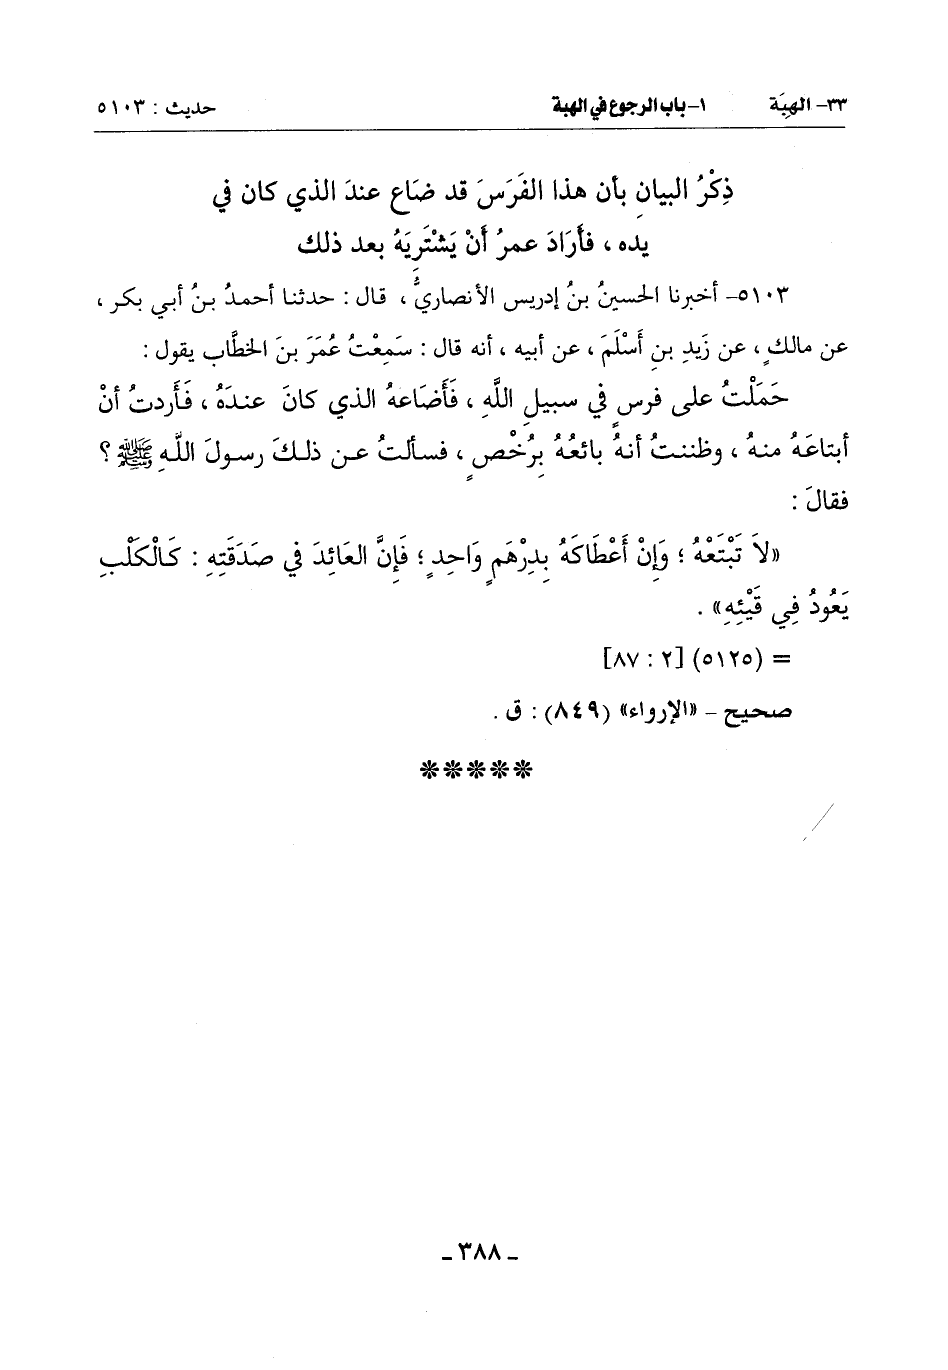 ٣٣- الهِبَة ١- باب الرجوع في الهبة حديث : ٥١٠٣
ذِكْرُ البيانِ بأن هذا الفَرَسَ قد ضَاع عندَ الذي كان في
يدِه ، فأَرَادَ عمرُ أَنْ يَشْتَرِيَهُ بعد ذلك
٥١٠٣- أخبرنا الحسينُ بنُ إدريس الأنصاريُّ ، قال : حدثنا أحمدُ بنُ أبي بكر ،
عن مالكٍ ، عن زَيدِ بنِ أَسْلَمَ ، عن أبيه ، أنه قال : سَمِعْتُ عُمَرَ بنَ الخطَّاب يقول :
حَمَلْتُ على فرسٍ في سبيلِ اللَّهِ ، فَأَضَاعهُ الذي كانَ عندَهُ ، فَأَردتُ أنْ
أبتاعَهُ منهُ ، وظننتُ أنهُ بائعُهُ بِرُخْصٍ ، فسألتُ عن ذلكَ رسولَ اللَّهِ ﷺ ؟
فقالَ :
«لاَ تَبْتَعْهُ ؛ وَإِنْ أَعْطَاكَهُ بِدِرْهَمٍ وَاحِدٍ ؛ فَإِنَّ العَائِدَ في صَدَقَتِهِ : كَالْكَلْبِ
يَعُودُ فِي قَيْئِهِ» .
= (٥١٢٥) [٢ : ٨٧]
صحيح - «الإرواء» (٨٤٩) : ق .
*****
ـ ٣٨٨ ـ